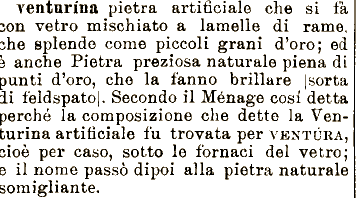 venturína pietra artificiale che si fà
con vetro mischiato a lamelle di rame,
che splende come piccoli grani d'oro; ed
è anche Pietra preziosa naturale piena di
punti d'oro, che la fanno brillare |sorta
di feldspato|. Secondo il Ménage cosí detta
perché la composizione che dette la Ven-
turina artificiale fu trovata per VENTÚRA,
cioè per caso, sotto le fornaci del vetro;
e il nome passò dipoi alla pietra naturale
somigliante.